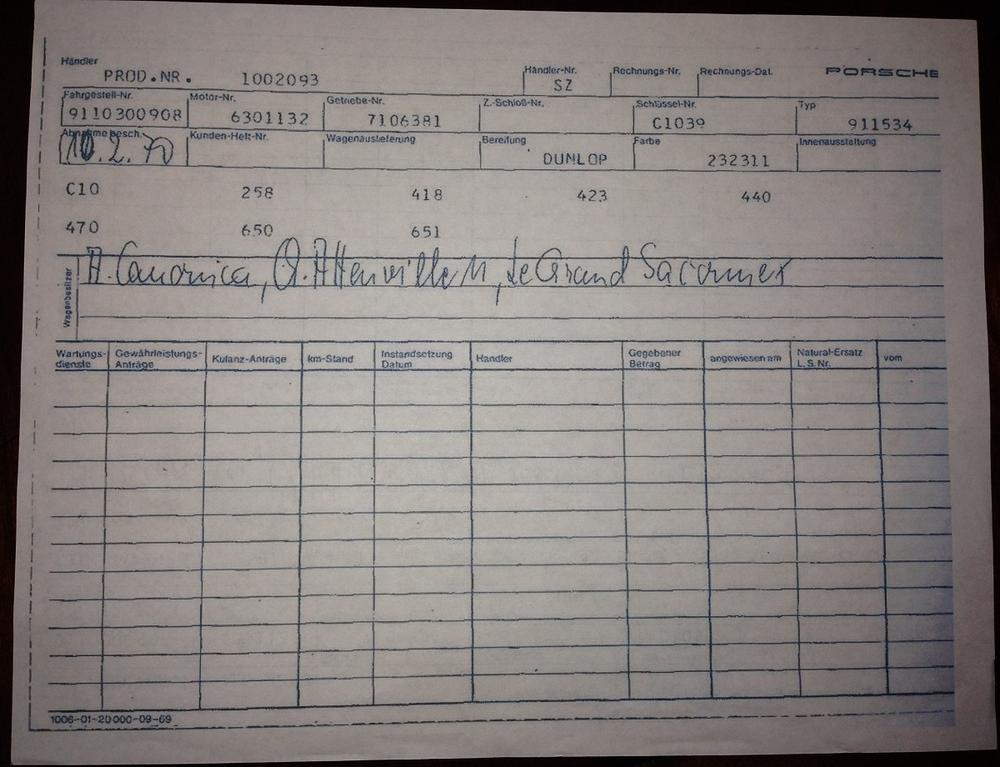 Händler Händler-Nr. Rechnungs-Nr. Rechnungs-Dat. PORSCHE
PROD.NR. 1002093 SZ
Fahrgestell-Nr. Motor-Nr. Getriebe-Nr. Z.-Schloß-Nr. Schlüssel-Nr. Typ
9110300908 6301132 7106381 C1039 911534
Abnahmebesch. Kunden-Heft-Nr. Wagenauslieferung Bereifung Farbe Innenausstattung
.2.70 DUNLOP 232311
C10 258 418 423 440
470 650 651
Wagenbesitzer
A. Canonica, Q. Attenville 11, Le Grand Saconnex
Wartungs- Gewährleistungs- Kulanz-Anträge km-Stand Instandsetzung Händler Gegebener angewiesen am Natural-Ersatz vom
dienste Anträge Datum Betrag L.S.Nr.
1006-01-20000-09-69